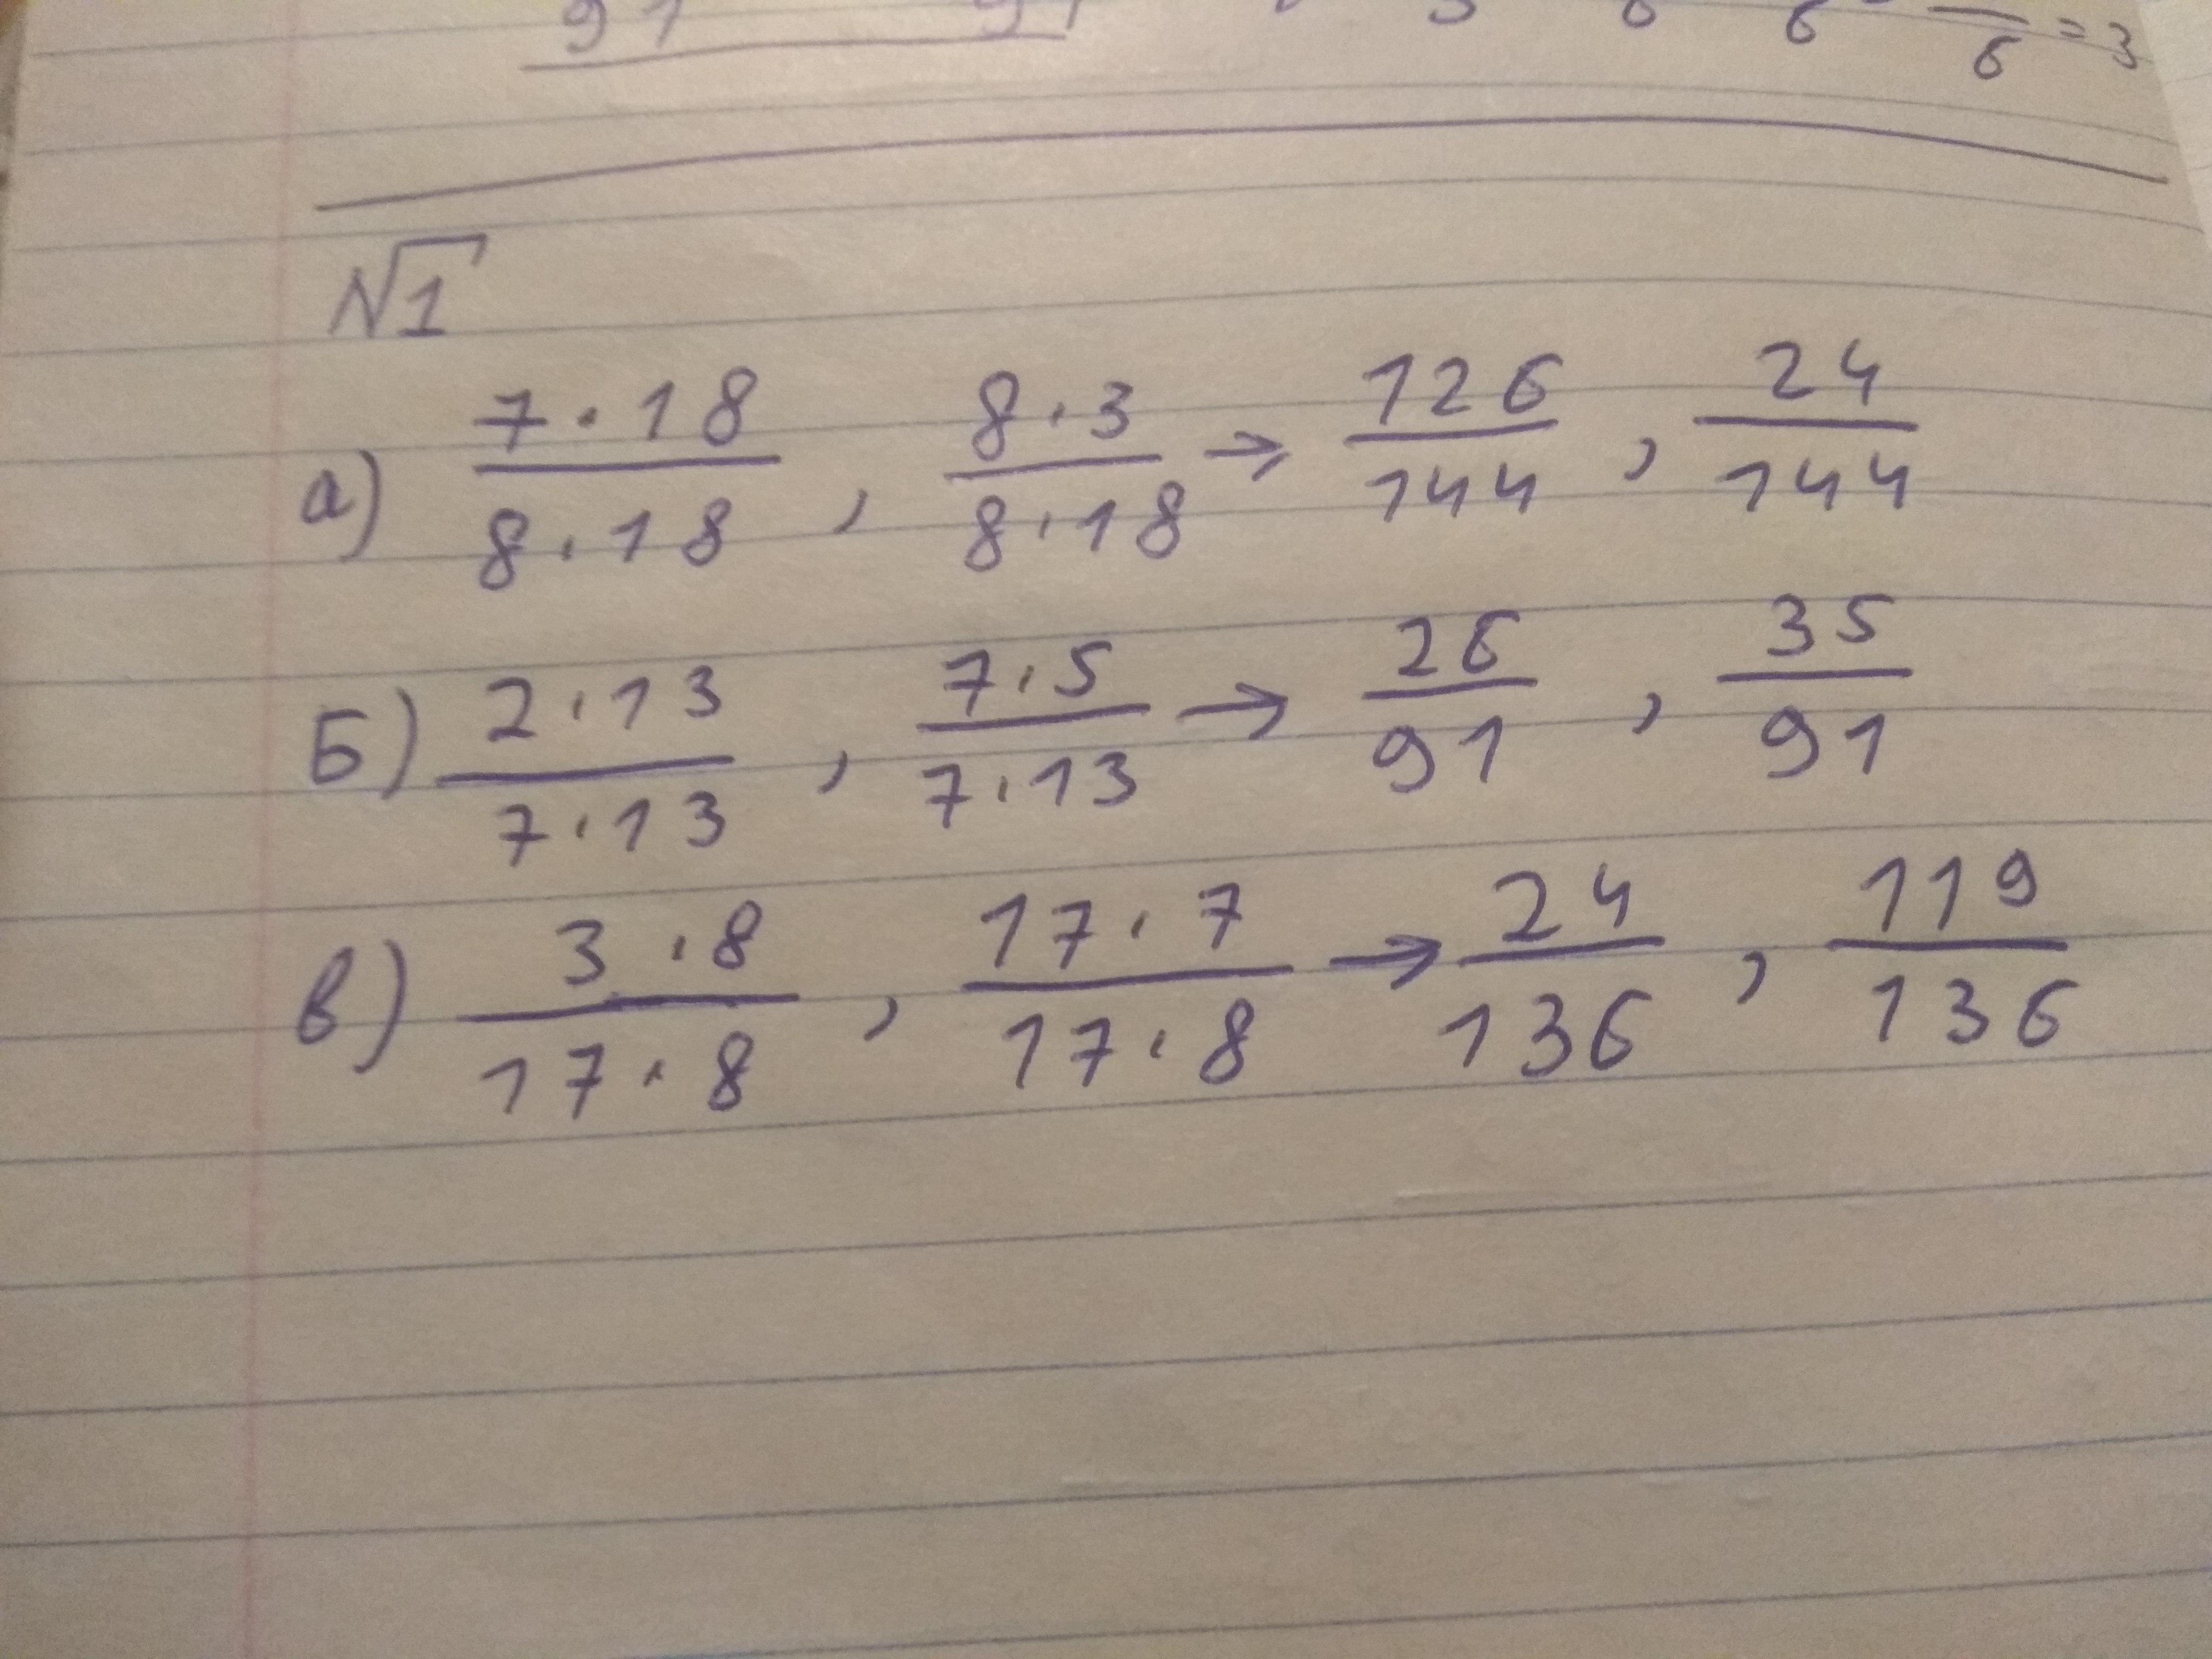 91 91 6 6 6 = 3
№1
а) 7·18/8·18 , 8·3/8·18 → 126/144 , 24/144
Б) 2·13/7·13 , 7·5/7·13 → 26/91 , 35/91
в) 3·8/17·8 , 17·7/17·8 → 24/136 , 119/136